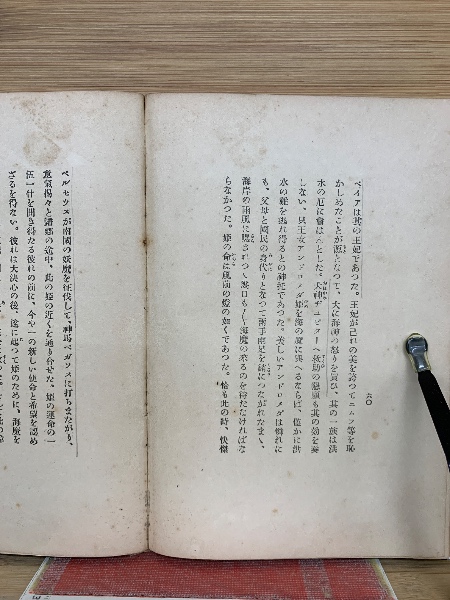 六〇
ペイアは其の王妃であつた。王妃が己れの美を誇つてニムフ等を恥
かしめたことが源となつて、大に海神の怒りを買ひ、其の一族は洪
水の厄に會はんとした。大神ヂュピターへ救助の懇願も其の効を奏
しない、只王女アンドロメダ姫を海の魔に與へるならば、僅かに洪
水の難を逃れ得るとの神託であつた。美しいアンドロメダは憐れに
も、父母と國民の身代りとなつて兩手兩足を鎖につながれたまい、
海岸の雨風に曝されつゝ
海魔の來るのを待たなければな
らなかつた。姫の命は風前の燈の如くであつた。恰も此の時、快傑
ペルセウスが南國の妖魔を征伐して、神馬ペガソスに打ちまたがり、
意氣揚々と歸鄕の途中、此の姫の近くを通り合せた。姫の運命の一
伍一什を聞き得たる彼れの前に、今や一の新しい使命と希望を認め
ざるを得ない。彼れは大決心の後、遂に起つて姫のために、海魔を